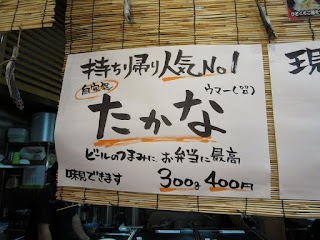 持ち帰り人気No1
自家製
ウマー(呂)
たかな
ビールのつまみに、お弁当に最高
味見できます
300g 400円
現